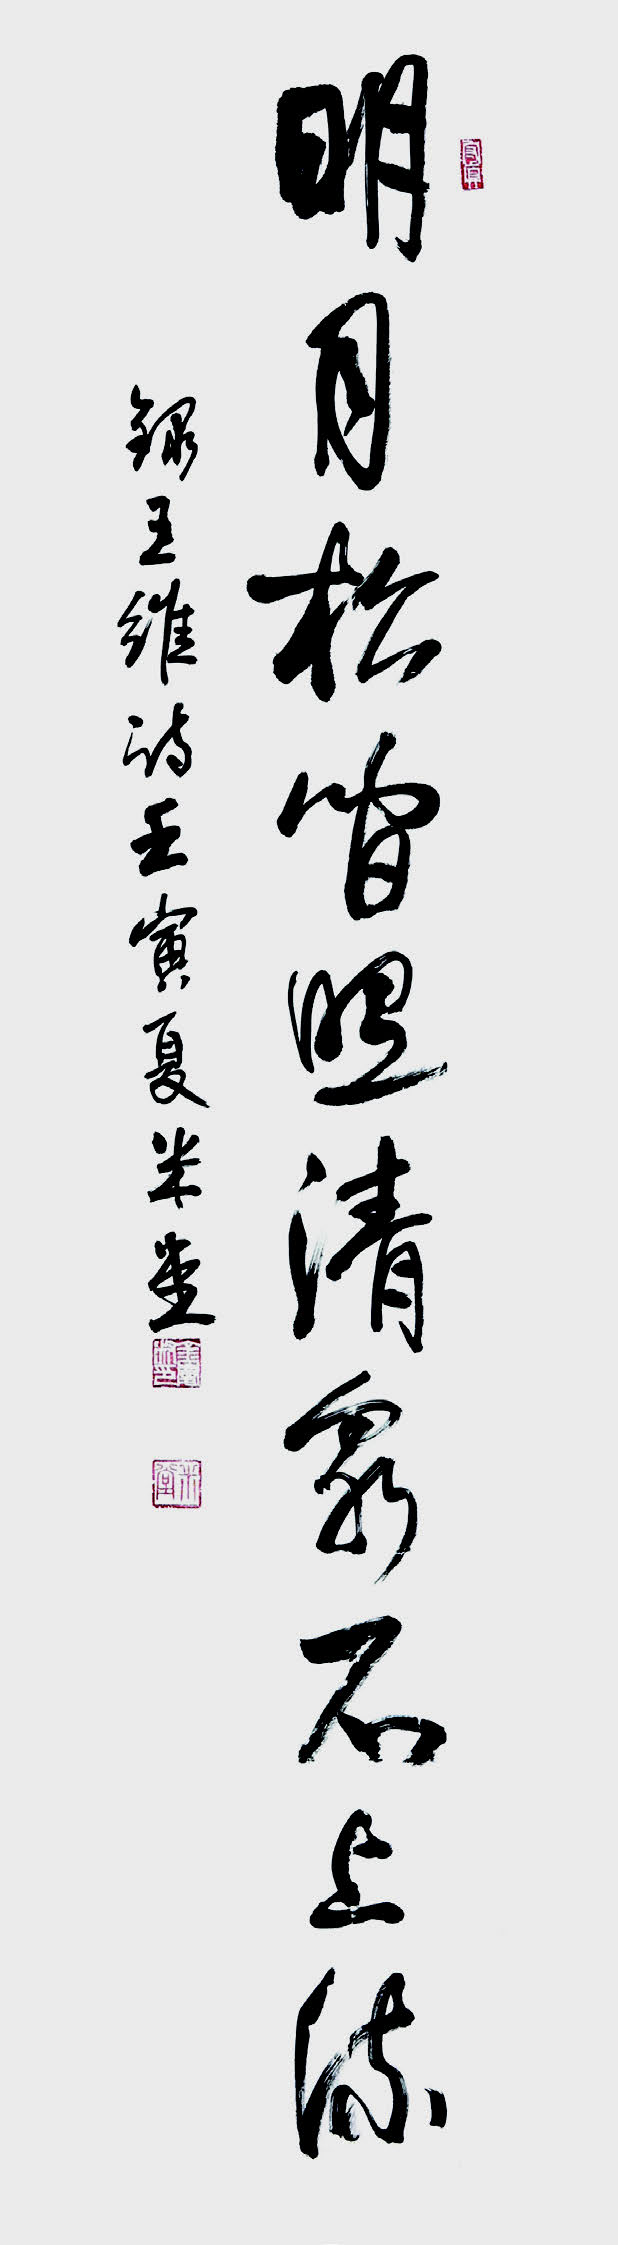 明月松间照清泉石上流
録王维诗壬寅夏米堂
米堂